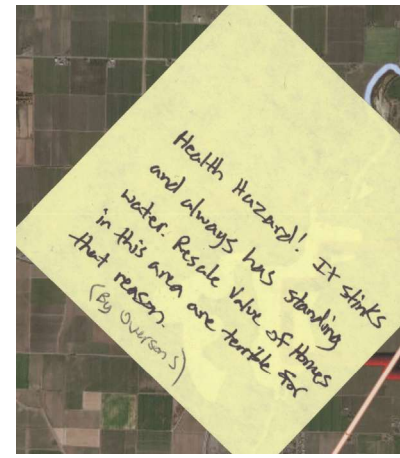 Health Hazard! It stinks
and always has standing
water. Resale Value of Homes
in this area are terrible for
that reason.
(By Oversons)